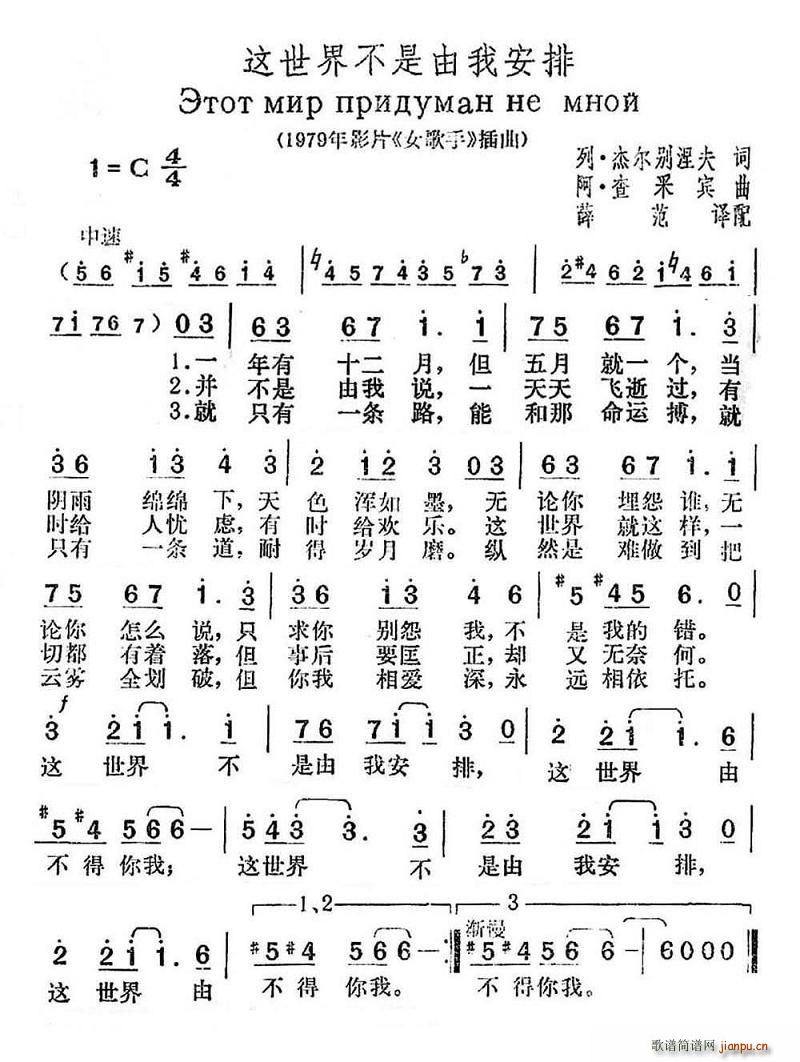 这世界不是由我安排
Этот мир придуман не мной
(1979年影片《女歌手》插曲)
1=C 4/4
列·杰尔别涅夫 词
阿·查采宾 曲
薛 范 译配
中速
(5 6 #1 5 #4 6 1 4 | ♮4 5 7 4 3 5 ♭7 3 | 2 #4 6 2 1 ♮4 6 1 |
7 1 7 6 7) 0 3 | 6 3 6 7 1. 1 | 7 5 6 7 1. 3 |
1.一 年有 十二 月,但 五月 就一 个,当
2.并 不是 由我 说,一 天天 飞逝 过,有
3.就 只有 一条 路,能 和那 命运 搏,就
3 6 1 3 4 3 | 2 1 2 3 0 3 | 6 3 6 7 1. 1 |
阴雨 绵绵 下,天 色 浑如 墨,无 论你 埋怨 谁,无
时给 人忧 虑,有 时 给欢 乐。这 世界 就这 样,一
只有 一条 道,耐 得 岁月 磨。纵 然是 难做 到 把
7 5 6 7 1. 3 | 3 6 1 3 4 6 | #5 #4 5 6. 0 |
论你 怎么 说,只 求你 别怨 我,不 是我的 错。
切都 有着 落,但 事后 要匡 正,却 又无奈 何。
云雾 全划 破,但 你我 相爱 深,永 远相依 托。
f
3 2 1 1. 1 | 7 6 7 1 1 3 0 | 2 2 1 1 1. 6 |
这 世界 不 是由 我安 排, 这 世界 由
#5 #4 5 6 6 — | 5 4 3 3. 3 | 2 3 2 1 1 3 0 |
不得你我; 这世界 不 是由 我安 排,
1、2
3
渐慢
2 2 1 1. 6 | #5 #4 5 6 6 — :‖ #5 #4 5 6 6 — | 6 0 0 0 ‖
这 世界 由 不 得 你我。 不得你我。
歌谱简谱网
jianpu.cn